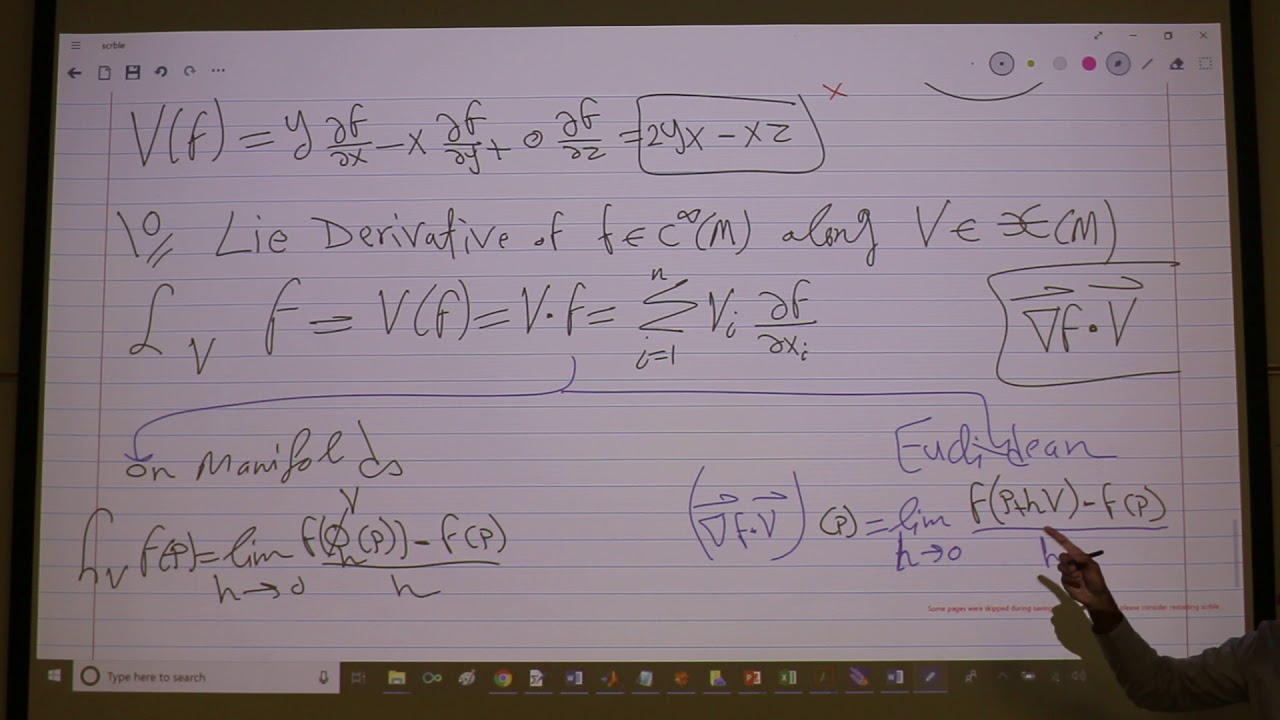 scrble
V(f) = y ∂f/∂x − x ∂f/∂y + 0 ∂f/∂z = 2yx − xz
10 Lie Derivative of f ∈ C^∞(M) along V ∈ 𝔛(M)
ℒ_V f = V(f) = V·f = Σ_{i=1}^{n} V_i ∂f/∂x_i
∇f·V
on Manifolds
Euclidean
ℒ_V f(p) = lim_{h→0} (f(ϕ_h^V(p)) − f(p))/h
(∇f·V)(p) = lim_{h→0} (f(p+hV) − f(p))/h
Some pages were skipped during saving please consider restarting scrble
Type here to search